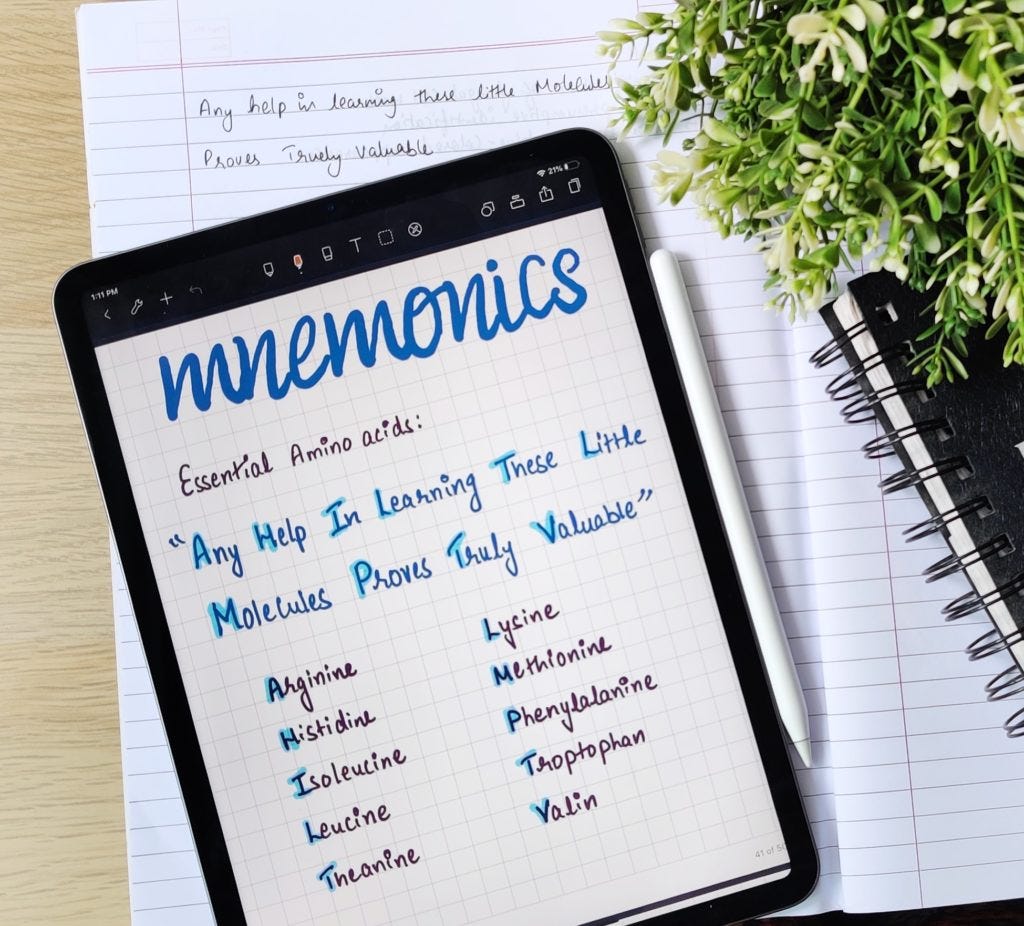 Any help in learning these little Molecules
Proves Truely Valuable
1:11 PM
21%
mnemonics
Essential Amino acids:
"Any Help In Learning These Little
Molecules Proves Truly Valuable"
Arginine
Histidine
Isoleucine
Leucine
Theanine
Lysine
Methionine
Phenylalanine
Troptophan
Valin
41 of